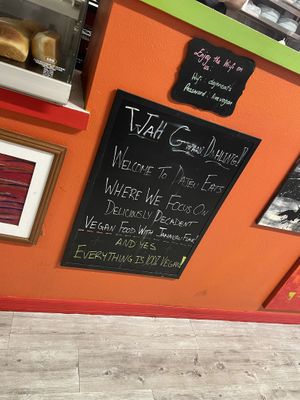 Enjoy the Wifi on
us
Wifi:
Password:
WAH G DAHLING!
WELCOME TO EATS
WHERE WE FOCUS ON
DELICIOUSLY DECADENT
VEGAN FOOD WITH JAMAICAN FLARE
AND YES
EVERYTHING IS 100% VEGAN!